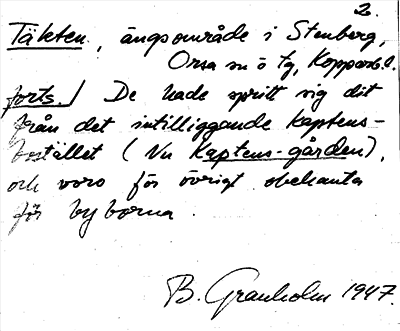 2.
Täkten, ängsområde i Stenberg,
Orsa sn ö tg, Kopparb. l.
forts./ De hade spritt sig dit
från det intilliggande kaptens-
bostället (Nu Kaptens-gården),
och voro för övrigt obekanta
för byborna.
B. Granholm 1947.